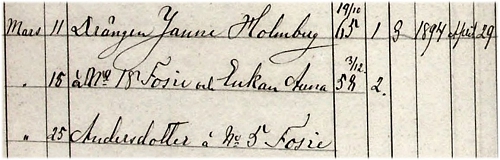 19/10
Mars 11 Drängen Janne Holmberg 65 1 3 1894 April 29
3/12
" 15 å No 18 Fosie och Enkan Anna 58 2.
" 25 Andersdotter å No 5 Fosie